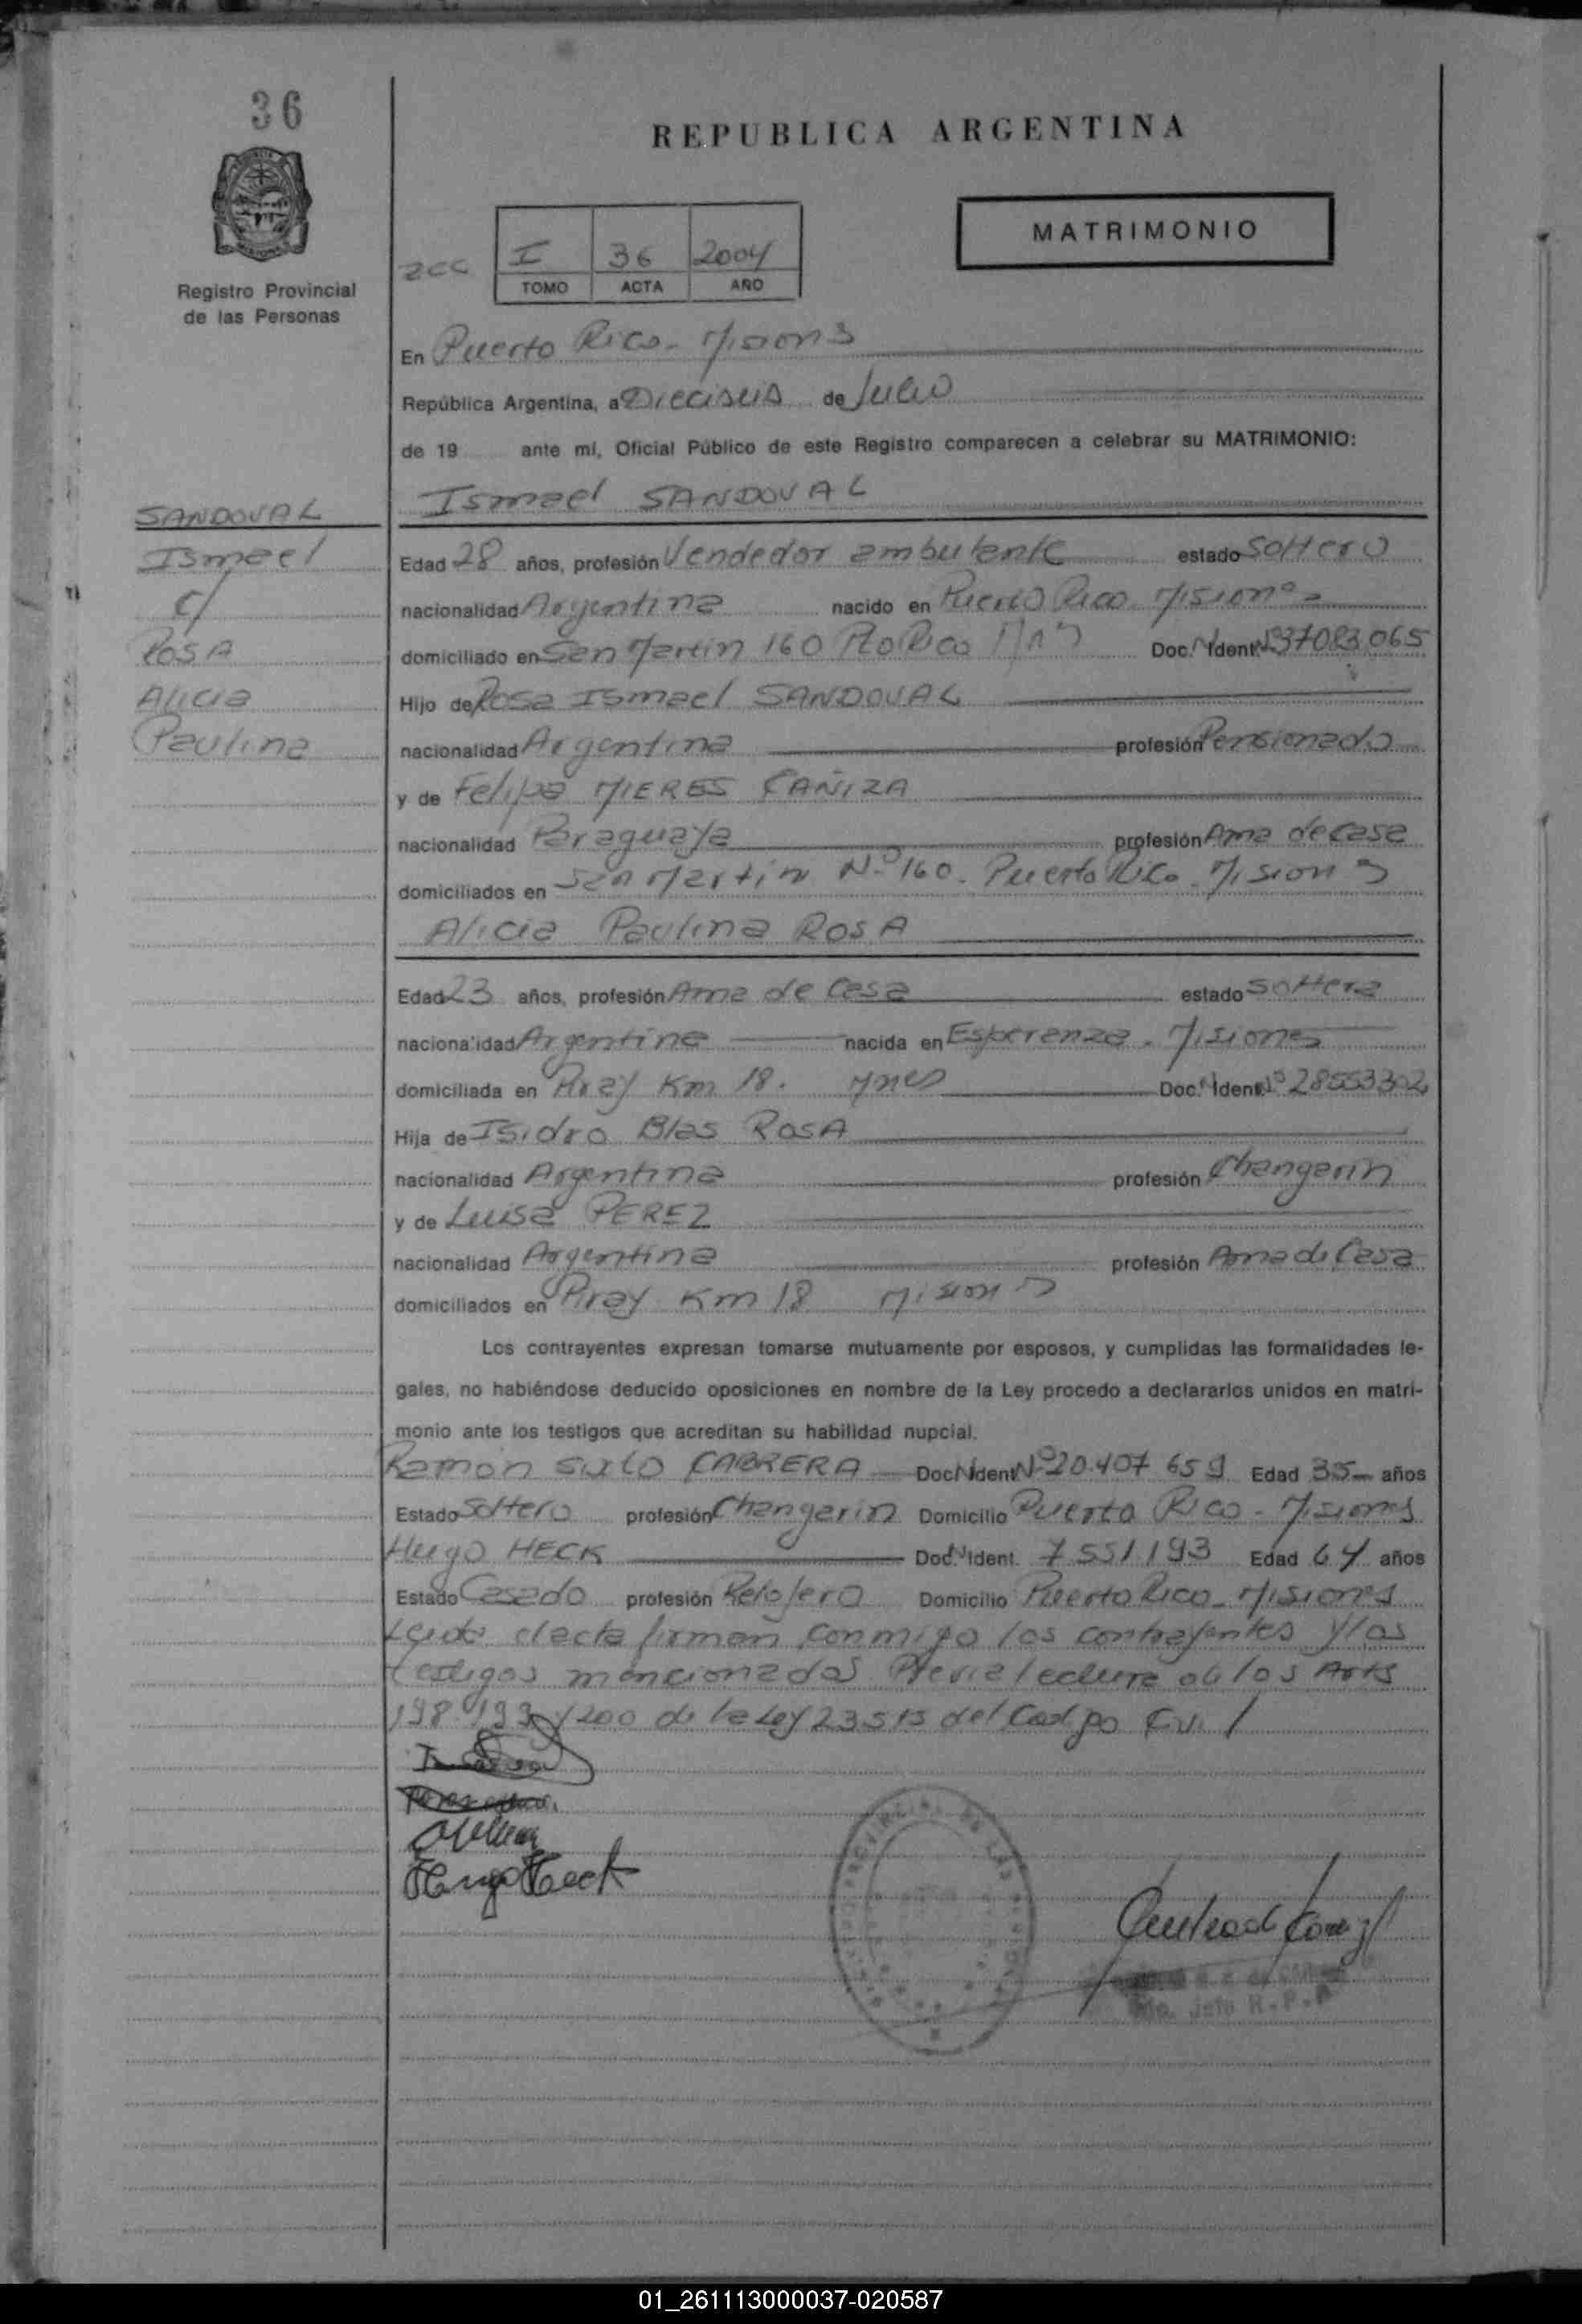 36
REPUBLICA ARGENTINA
MATRIMONIO
I 36 2004
TOMO ACTA AÑO
Registro Provincial
de las Personas
En Puerto Rico - Misiones
República Argentina, a Dieciseis de Julio
de 19 ante mí, Oficial Público de este Registro comparecen a celebrar su MATRIMONIO:
Ismael SANDOVAL
SANDOVAL
Ismael
c/
ROSA
Alicia
Paulina
Edad 28 años, profesión Vendedor ambulante estado Soltero
nacionalidad Argentina nacido en Puerto Rico Misiones
domiciliado en San Martin 160 Pto Rico Doc. Ident. Nº 37083.065
Hijo de Rosa Ismael SANDOVAL
nacionalidad Argentina profesión Pensionado
y de Felipa MIERES CAÑIZA
nacionalidad Paraguaya profesión Ama de casa
domiciliados en San Martin Nº 160 - Puerto Rico - Misiones
Alicia Paulina ROSA
Edad 23 años, profesión Ama de Casa estado Soltera
nacionalidad Argentina nacida en Esperanza - Misiones
domiciliada en Piray Km 18. Mnes Doc. Ident. Nº 28553302
Hija de Isidro Blas ROSA
nacionalidad Argentina profesión Changarin
y de Luisa PEREZ
nacionalidad Argentina profesión Ama de Casa
domiciliados en Piray Km 18 Misiones
Los contrayentes expresan tomarse mutuamente por esposos, y cumplidas las formalidades le-
gales, no habiéndose deducido oposiciones en nombre de la Ley procedo a declararlos unidos en matri-
monio ante los testigos que acreditan su habilidad nupcial.
Ramón CABRERA Doc. Ident. Nº 20.407 659 Edad 35 años
Estado Soltero profesión Changarin Domicilio Puerto Rico - Misiones
Hugo HECK Doc. Ident. 7551193 Edad 64 años
Estado Casado profesión Relojero Domicilio Puerto Rico - Misiones
Leida el acta firman conmigo los contrayentes y los
testigos mencionados Previa lectura de los Arts
198 199 y 200 de la Ley 23515 del Codigo Civil
Hugo Heck
01_261113000037-020587